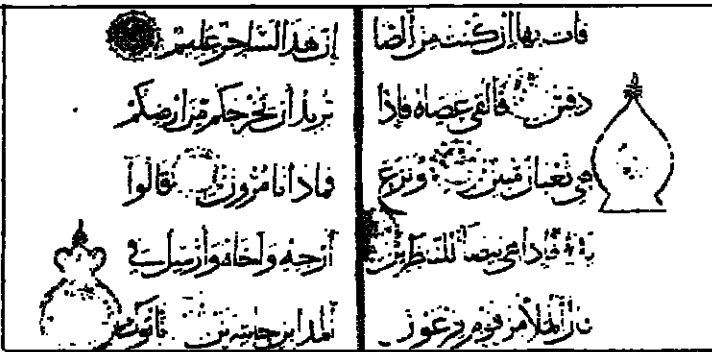 فات بها إن كنت من ألصا
دقين فألقى عصاه فإذا
هي ثعبان مبين ونزع
يده فإذا هي بيضاء للنظرين
قال ألملأ من قوم فرعون
إن هذا لسحر عليم
يريد أن يخرجكم من أرضكم
فماذا تامرون قالوا
أرجه وأخاه وأرسل في
ألمداين حشرين ياتوك